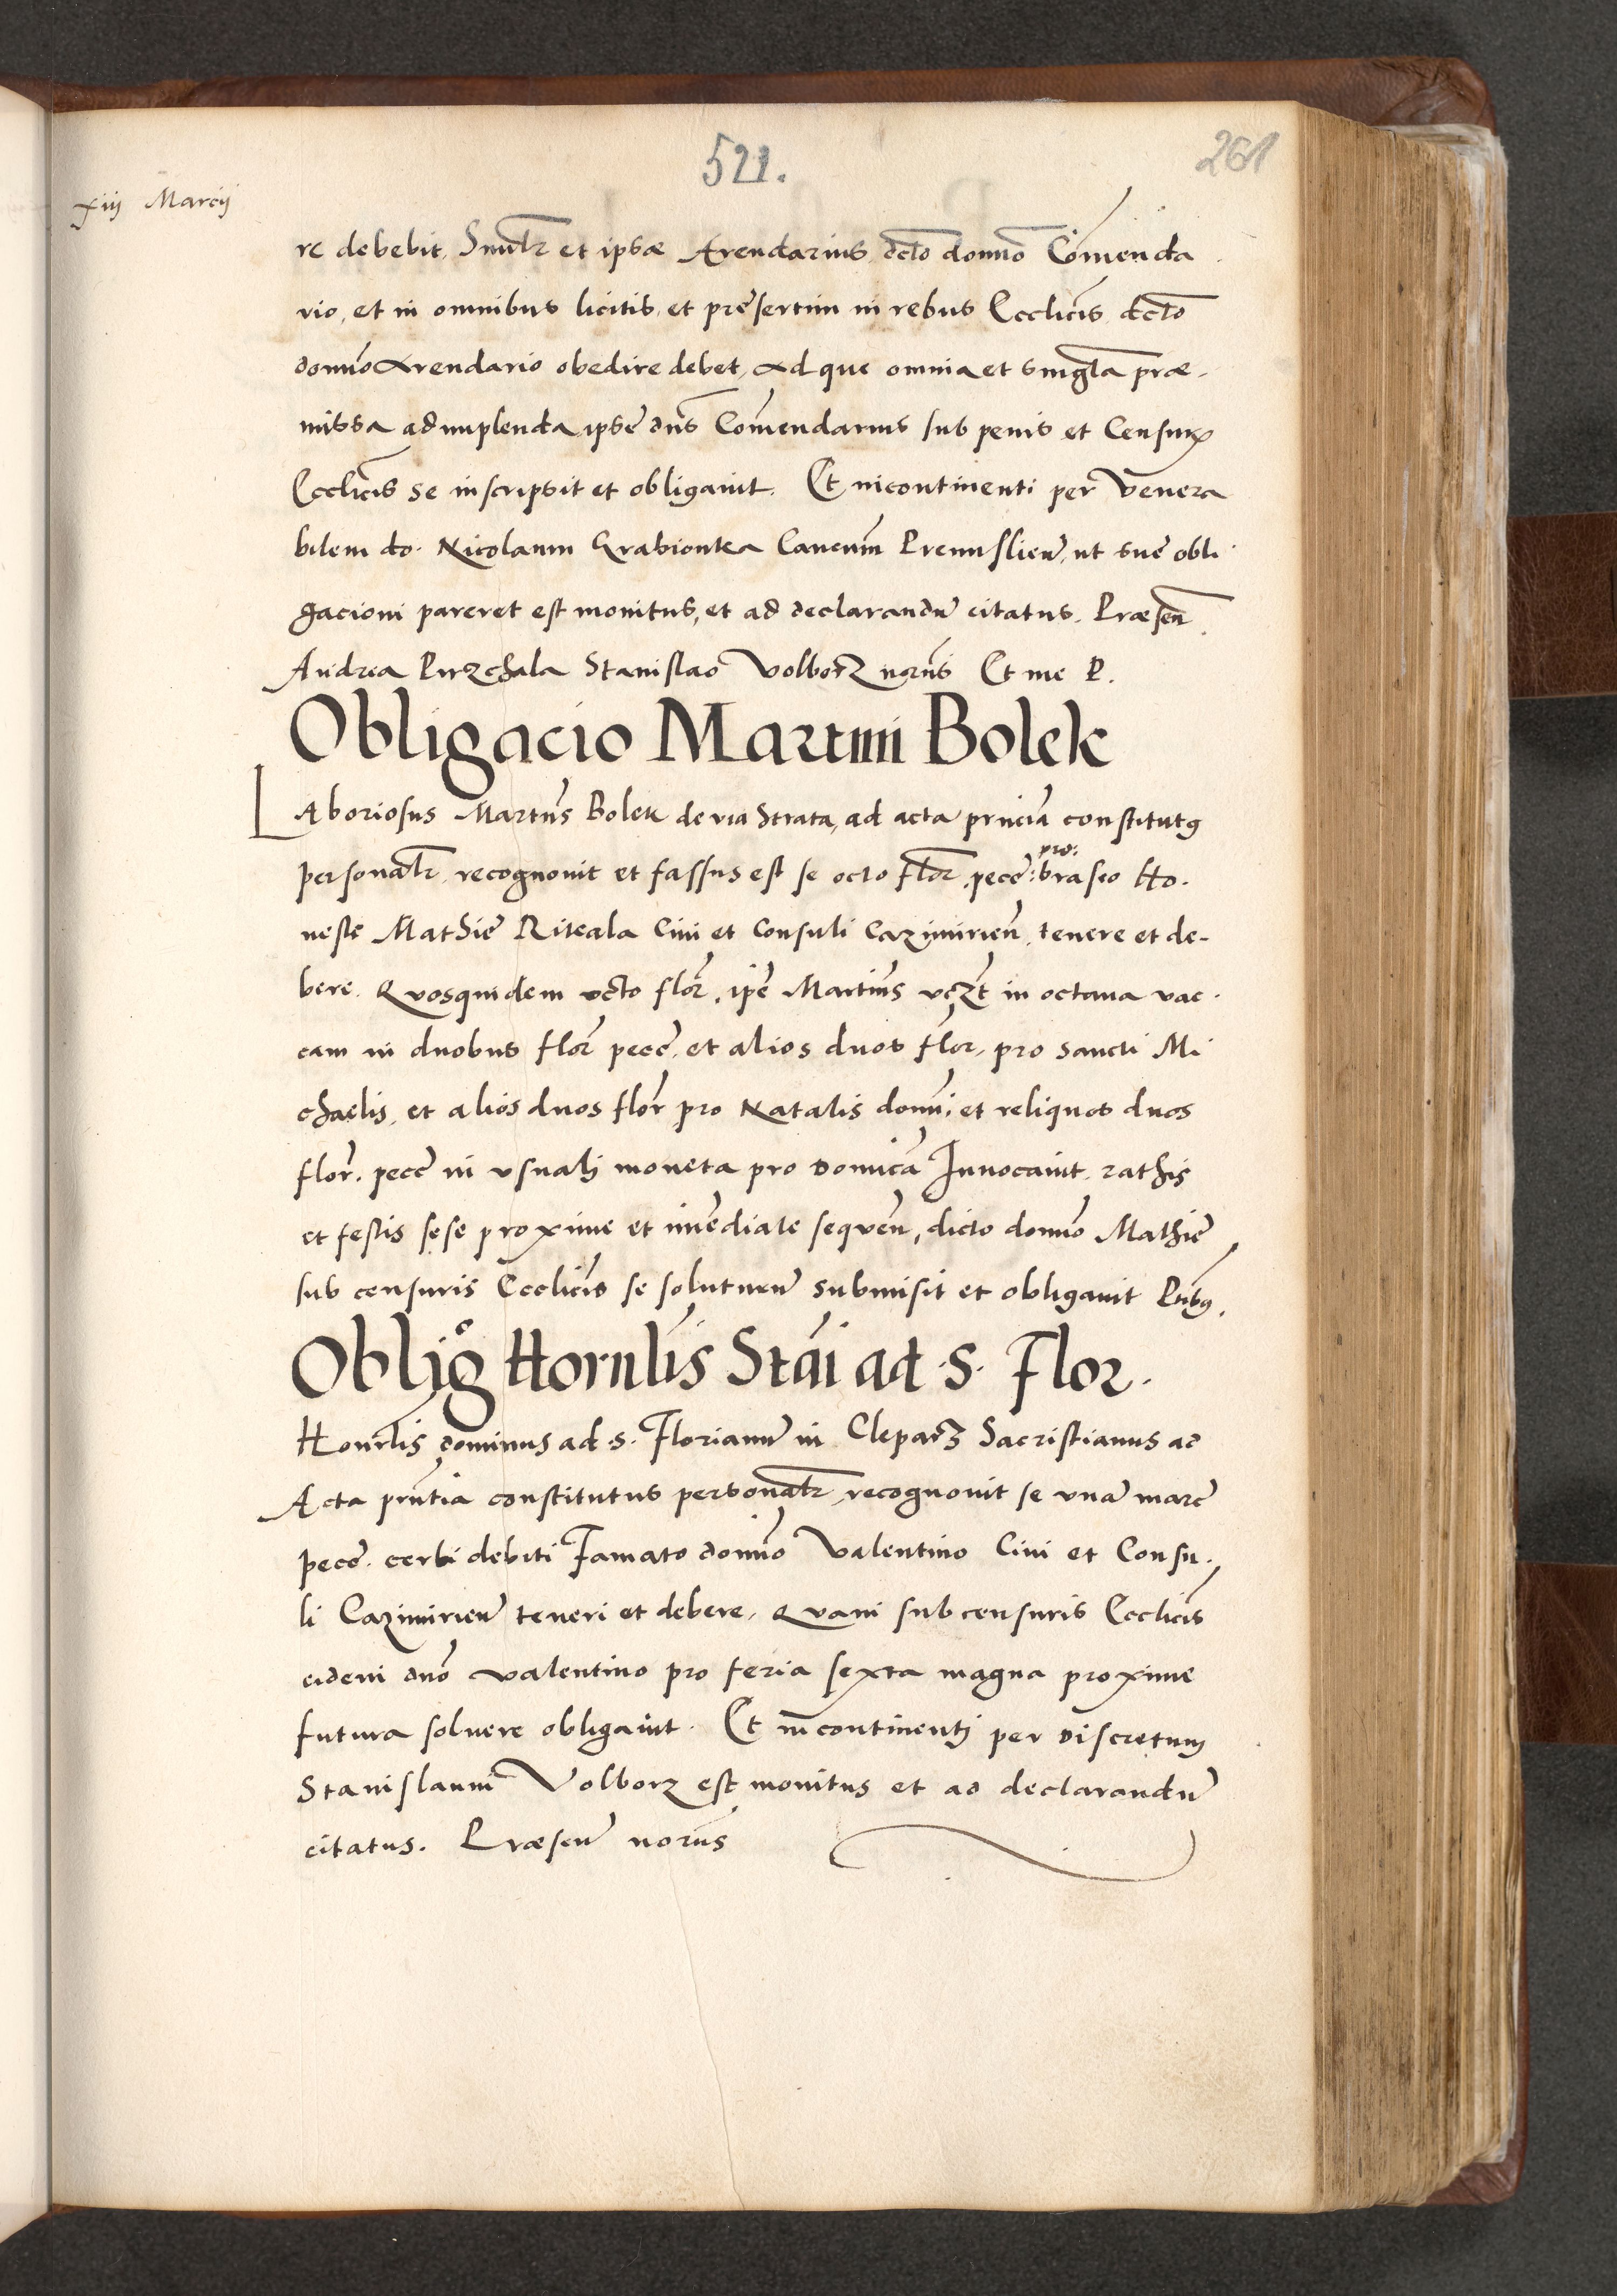 521.
261
xiij Marcij
re debebit, Simlr et ipsæ Arendarius dcto domno Comenda
rio, et in omnibus licitis, et presertim in rebus Ecclicis dcto
domno Arendario obedire debet, Ad que omnia et singla præ-
missa adimplenda ipse dns Comendarius sub penis et Censuris
Ecclicis se inscripsit et obligauit. Et incontinenti per Venera
bilem do. Nicolaum Grabionka Canoum Premislien, ut sue obli
gacioni pareret est monitus, et ad declarandu citatus. Præsen
Andrea Pirzchala Stanislao Volborz nortis Et me P.
Obligacio Martini Bolek
Laboriosus Martins Bolek de via Strata, ad acta prncia constitutus
personalr, recognouit et fassus est se octo flor, pece: pro: braseo Ho.
neste Mathie Riteala Ciui et Consuli Cazimirien, tenere et de-
bere. Quosquidem octo flor, ipe Martins vczt in octaua vac-
cam in duobus flor pece, et alios duos flor, pro sancti Mi
chaelis, et alios duos flor pro Natalis domni et reliquos duos
flor. pece in vsuali moneta pro domica Inuocauit. rathis
et festis sese proxime et imediate sequen, dicto domno Mathie
sub censuris Ecclicis se soluturu submisit et obligauit Pntibus.
Oblig^o Hornlis Stai ad .S. Flor.
Honrlis dominus ad .S. Florianu in Cleparz Sacristianus ad
Acta prntia constitutus personalr, recognouit se vna marc
pece. certi debiti Famato domno Valentino Ciui et Consu-
li Cazimirien teneri et debere, Quam sub censuris Ecclicis
eidem dno Valentino pro feria sexta magna proxime
futura soluere obligauit. Et incontinenti per discretum
Stanislaum Volborz est monitus et ad declarandu
citatus. Præsen nortis